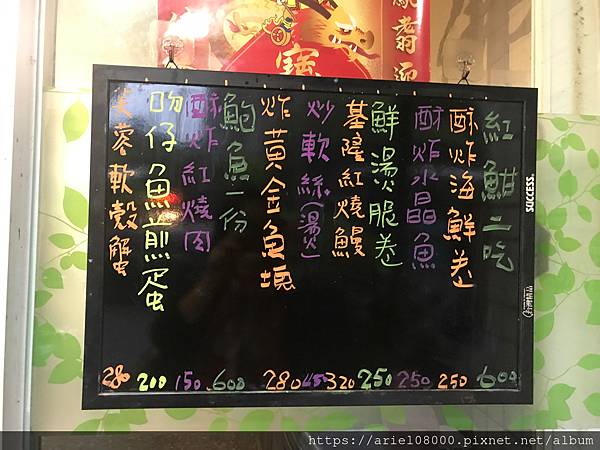 鳳翥迎
寶
紅魽二吃 600
酥炸海鮮卷 250
酥炸水晶魚 250
鮮湯脆卷 250
基隆紅燒鰻 320
炒軟絲(湯)
炸黃金魚塊 280
鮑魚一份 600
酥炸紅燒肉 150
吻仔魚煎蛋 200
芙蓉軟殼蟹 280
SUCCESS.
https://ariel08000.pixnet.net/album